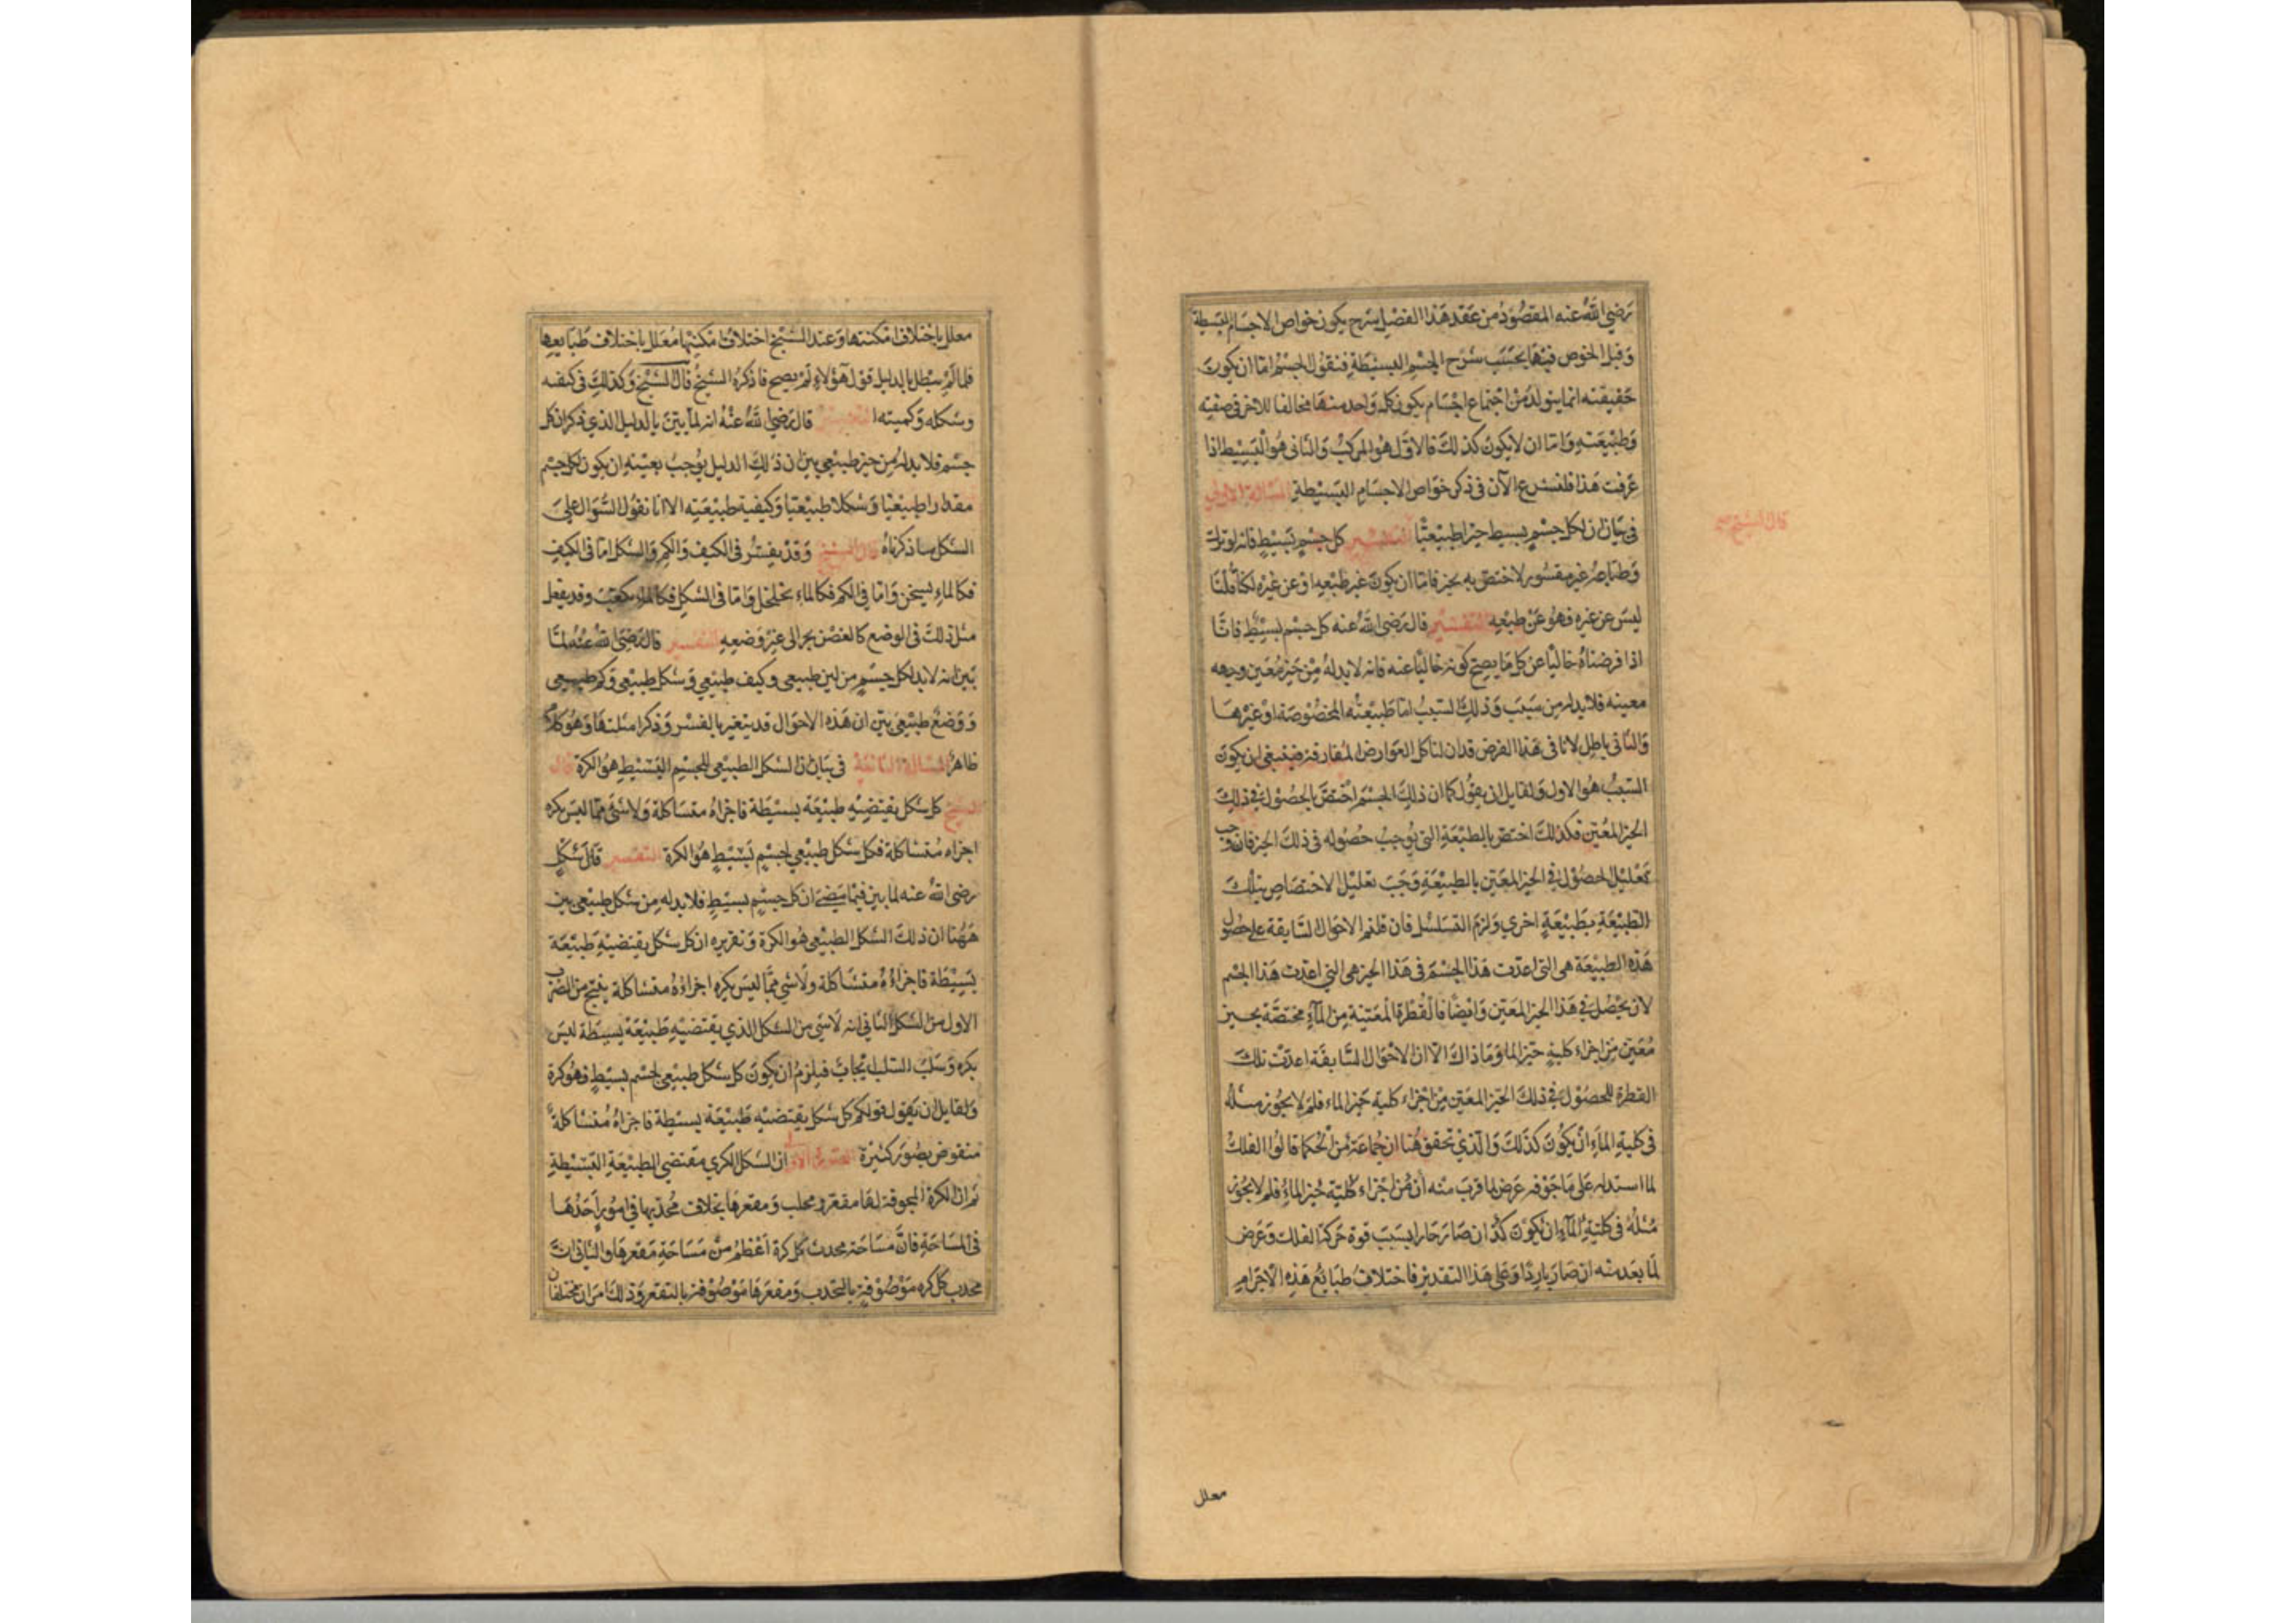 رضي الله عنه المقصود من عقد هذا الفصل شرح يكون خواص الاجسام البسيطة
وقبل الخوض فيها يحسب شرح الجسم البسيطة فنقول الجسم اما ان يكون
حقيقته انما يتولد من اجتماع اجسام يكون كل واحد منها مخالفا للاخر في صفته
وطبيعته واما ان لا يكون كذلك فالاول هو المركب والثاني هو البسيط اذا
عرفت هذا فلنشرع الآن في ذكر خواص الاجسام البسيطة المسالة الاولي
في بيان ان لكل جسم بسيط حيزا طبيعيا التفسير كل جسم بسيط فانه لو ترك
قال الشيخ
وطباعه غير مقسور لاختص به بحيز فاما ان يكون غير طبعه او عن غيره لكنا قلنا
ليس عن غيره فهو عن طبعه التفسير قال رضي الله عنه كل جسم بسيط فانا
اذا فرضناه خاليا عن كل ما يصح كونه خاليا عنه فانه لا بد له من حيز معين وجهه
معينه فلا بد له من سبب وذلك السبب اما طبيعته المخصوصة او غيرها
والثاني باطل لانا في هذا الفرض قد ازلنا كل العوارض المفارقة فينبغي ان يكون
السبب هو الاول ولقايل ان يقول كما ان ذلك الجسم اختص بالحصول في ذلك
الحيز المعين فكذلك اختص بالطبيعة التي يوجب حصوله في ذلك الحيز فان وجب
تعليل الحصول في الحيز المعين بالطبيعة وجب تعليل الاختصاص بتلك
الطبيعة بطبيعة اخري ولزم التسلسل فان قلتم الاحوال السابقة علي حصول
هذه الطبيعة هي التي اعدت هذا الجسم في هذا الحيز هي التي اعدت هذا الجسم
لان يحصل في هذا الحيز المعين وايضا فالقطرة المعينة من المآء مختصة بحيز
معين من اجزاء كلية حيز الما وما ذاك الا ان الاحوال السابقة اعدت تلك
القطرة للحصول في ذلك الحيز المعين من اجزاء كلية حيز الماء فلم لا يجوز مثله
في كلية الماء ان يكون كذلك والذي تحقق هنا ان جماعة من الحكما قالوا الفلك
لما استدار علي ما جوفه عرض لما قرب منه ان من اجزاء كلية حيز الماء فلم لا يجوز
مثله في كلية المآء ان يكون كذ ان صار حارا بسبب قوة حركة الفلك وعرض
لما بعد منه ان صار باردا وعلي هذا التقدير فاختلاف طبايع هذه الاجرام
معلل
معلل باختلاف امكنتها وعند الشيخ اختلاف امكنتها معلل باختلاف طبايعها
فلما لم يبطل بالدليل قول هؤلاء لم يصح ما ذكره الشيخ قال الشيخ وكذلك في كيفه
وشكله وكميته التفسير قال رضي الله عنه انه لما بين بالدليل الذي ذكر ان كل
جسم فلا بد له من حيز طبيعي بين ان ذلك الدليل يوجب بعينه ان يكون لكل جسم
مقدارا طبيعيا وشكلا طبيعيا وكيفية طبيعيه الا انا نقول السؤال علي
الشكل ما ذكرناه قال الشيخ وقد يقسر في الكيف والكم والشكل اما في الكيف
فكالماء يسخن واما في الكم فكالماء يخلخل واما في الشكل فكالماء يكعب وقد يفعل
مثل ذلك في الوضع كالغصن يجر الى غير وضعه التفسير قال رضي الله عنه لما
بين انه لا بد لكل جسم من اين طبيعي وكيف طبيعي وشكل طبيعي وكم طبيعي
ووضع طبيعي بين ان هذه الاحوال قد يتغير بالقسر وذكر امثلتها وهو كلام
ظاهر المسالة الثانية في بيان ان الشكل الطبيعي للجسم البسيط هو الكرة قال
الشيخ كل شكل يقتضيه طبيعة بسيطة فاجزاه متشاكلة ولا شئ مما ليس بكره
اجزاه متشاكلة فكل شكل طبيعي لجسم بسيط هو الكرة التفسير قال شكل
رضي الله عنه لما بين فيما مضي ان كل جسم بسيط فلا بد له من شكل طبيعي بين
ههنا ان ذلك الشكل الطبيعي هو الكرة وتقريره ان كل شكل يقتضيه طبيعة
بسيطة فاجزاؤه متشاكلة ولا شي مما ليس بكره اجزاؤه متشاكلة ينتج من الضرب
الاول من الشكل الثاني انه لا شي من الشكل الذي يقتضيه طبيعة بسيطة ليس
بكره وسلب السلب ايجاب فيلزم ان يكون كل شكل طبيعي لجسم بسيط فهو كرة
ولقايل ان يقول قولكم كل شكل يقتضيه طبيعة بسيطة فاجزاه متشاكلة
منقوض بصور كثيرة الصورة الاولي ان الشكل الكري مقتضي الطبيعة البسيطة
ثم ان الكرة المجوفة لها مقعر ومحدب ومقعرها بخلاف محدبها في امور احدها
في المساحة فان مساحة محدب كل كرة اعظم من مساحة مقعرها والثاني ان
محدب كل كره موصوفة بالتحدب ومقعرها موصوفة بالتقعر وذلك امران مختلفان